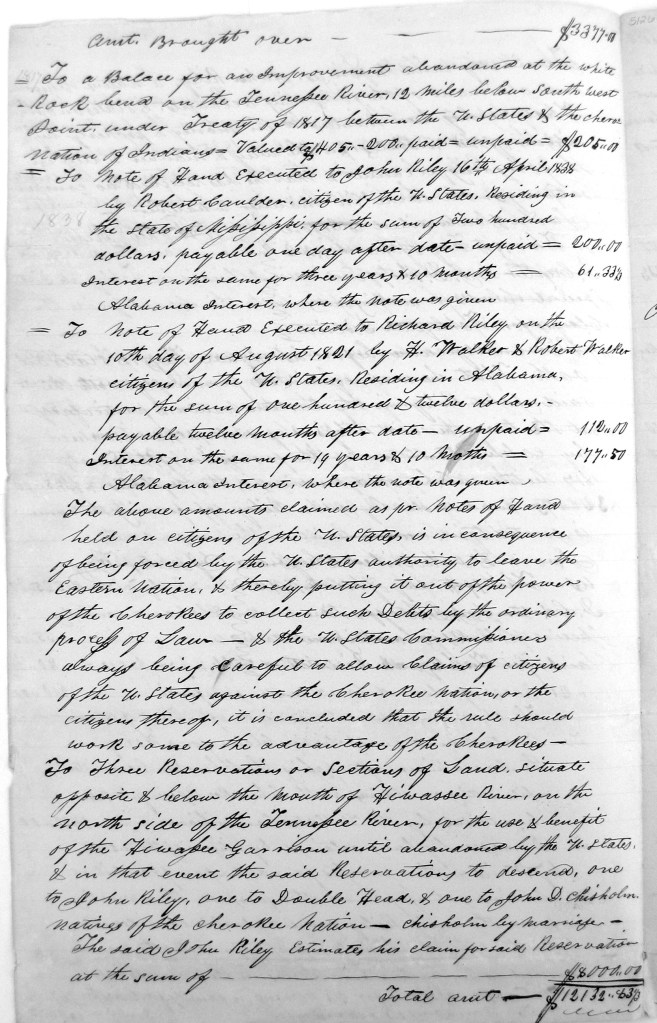 Amt. Brought over — — $3377.11
= To a Balace for an Improvement abandoned at the white
Rock bend on the Tennessee River, 12 miles below South west
Point, under Treaty of 1817 between the U. States & the cherokee
Nation of Indians = Valued to $405.-200.. paid = unpaid = $205.00
= To Note of Hand Executed to John Riley 16th April 1838
by Robert Caulder, citizen of the U. States, Residing in
the State of Mississippi, for the sum of Two hundred
dollars, payable one day after date - unpaid = 200..00
Interest on the same for three years & 10 months = 61..33⅓
Alabama Interest, where the note was given
= To Note of Hand Executed to Richard Riley, on the
10th day of August 1821 by H. Walker & Robert Walker
citizens of the U. States, Residing in Alabama,
for the sum of one hundred & twelve dollars, -
payable twelve months after date — unpaid = 112..00
Interest on the same for 19 years & 10 moths = 177..50
Alabama Interest, where the note was given
The above amounts claimed as pr. Notes of Hand
held on citizens of the U. States, is in consequence
of being forced by the U. States authority to leave the
Eastern Nation, & thereby putting it out of the power
of the Cherokees to collect such Debts by the ordinary
process of Law — & the U. States Commissioners
always being Careful to allow Claims of citizens
of the U. States against the Cherokee Nation, or the
citizens thereof, it is concluded that the rule should
work some to the advantage of the Cherokees —
To Three Reservations or Sections of Land, situate
opposite & below the Mouth of Hiwassee River, on the
north side of the Tennessee River, for the use & benefit
of the Hiwassee Garrison until abandoned by the U. States,
& in that event the said Reservations to descend, one
to John Riley, one to Double Head, & one to John D. Chisholm
natives of the cherokee Nation — chisholm by marriage —
The said John Riley Estimates his claim for said Reservation
at the sum of — $8000.00
Total amt — $12132..83⅓